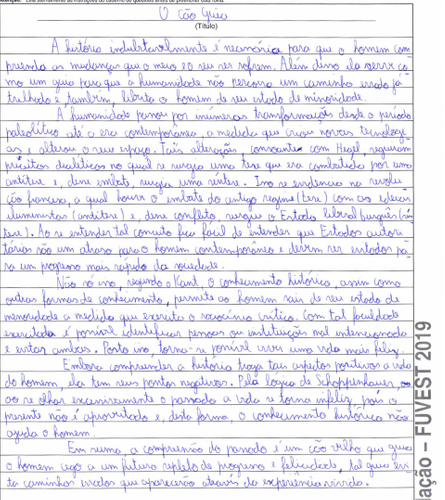 Atenção: Leia atentamente as instruções do caderno de questões antes de preencher esta folha.
O cão guia
(Título)
A história indubitavelmente é necessária para que o homem com
preenda as mudanças que o meio e o seu ser sofrem. Além disso ela serve co
mo um guia para que a humanidade não percorra um caminho errado já
trilhado e também liberta o homem de seu estado de minoridade.
A humanidade passou por inúmeras transformações desde o período
paleolítico até a era contemporânea, a medida que criou novas tecnologi
as e alterou o seu espaço. Tais alterações, consoante com Hegel seguiram
preceitos dialéticos no qual se surgia uma tese que era combatida por uma
antítese e, desse embate, surgia uma síntese. Isso se evidencia na revolu
ção francesa, a qual houve o embate do antigo regime (tese) com as ideias
iluministas (antítese) e, desse conflito, surgiu o Estado liberal burguês (sín
tese). Ao se entender tal conceito fica fácil de entender que Estados autori
tários são um atraso para o homem contemporâneo e devem ser evitados pa
ra um progresso mais rápido da sociedade.
Não só isso, segundo o Kant, o conhecimento histórico, assim como
outras formas de conhecimento, permite ao homem sair de seu estado de
menoridade a medida que exercita o raciocínio crítico. Com tal faculdade
exercitada é possível identificar pessoas ou instituições mal intencionadas
e evitar ambas. Posto isso, torna-se possível viver uma vida mais feliz.
Embora compreender a história traga tais aspectos positivos a vida
do homem, ela tem seus pontos negativos. Pela lógica de Schoppenhauer,
ao se olhar excessivamente o passado a vida se torna infeliz, pois o
presente não é aproveitado e, desta forma, o conhecimento histórico não
ajuda o homem.
Em suma, a compreensão do passado é um cão velho que guia
o homem cego a um futuro repleto de progresso e felicidade, tal guia evi
ta caminhos errados que apareceriam através da experiência vivida.
ação – FUVEST 2019